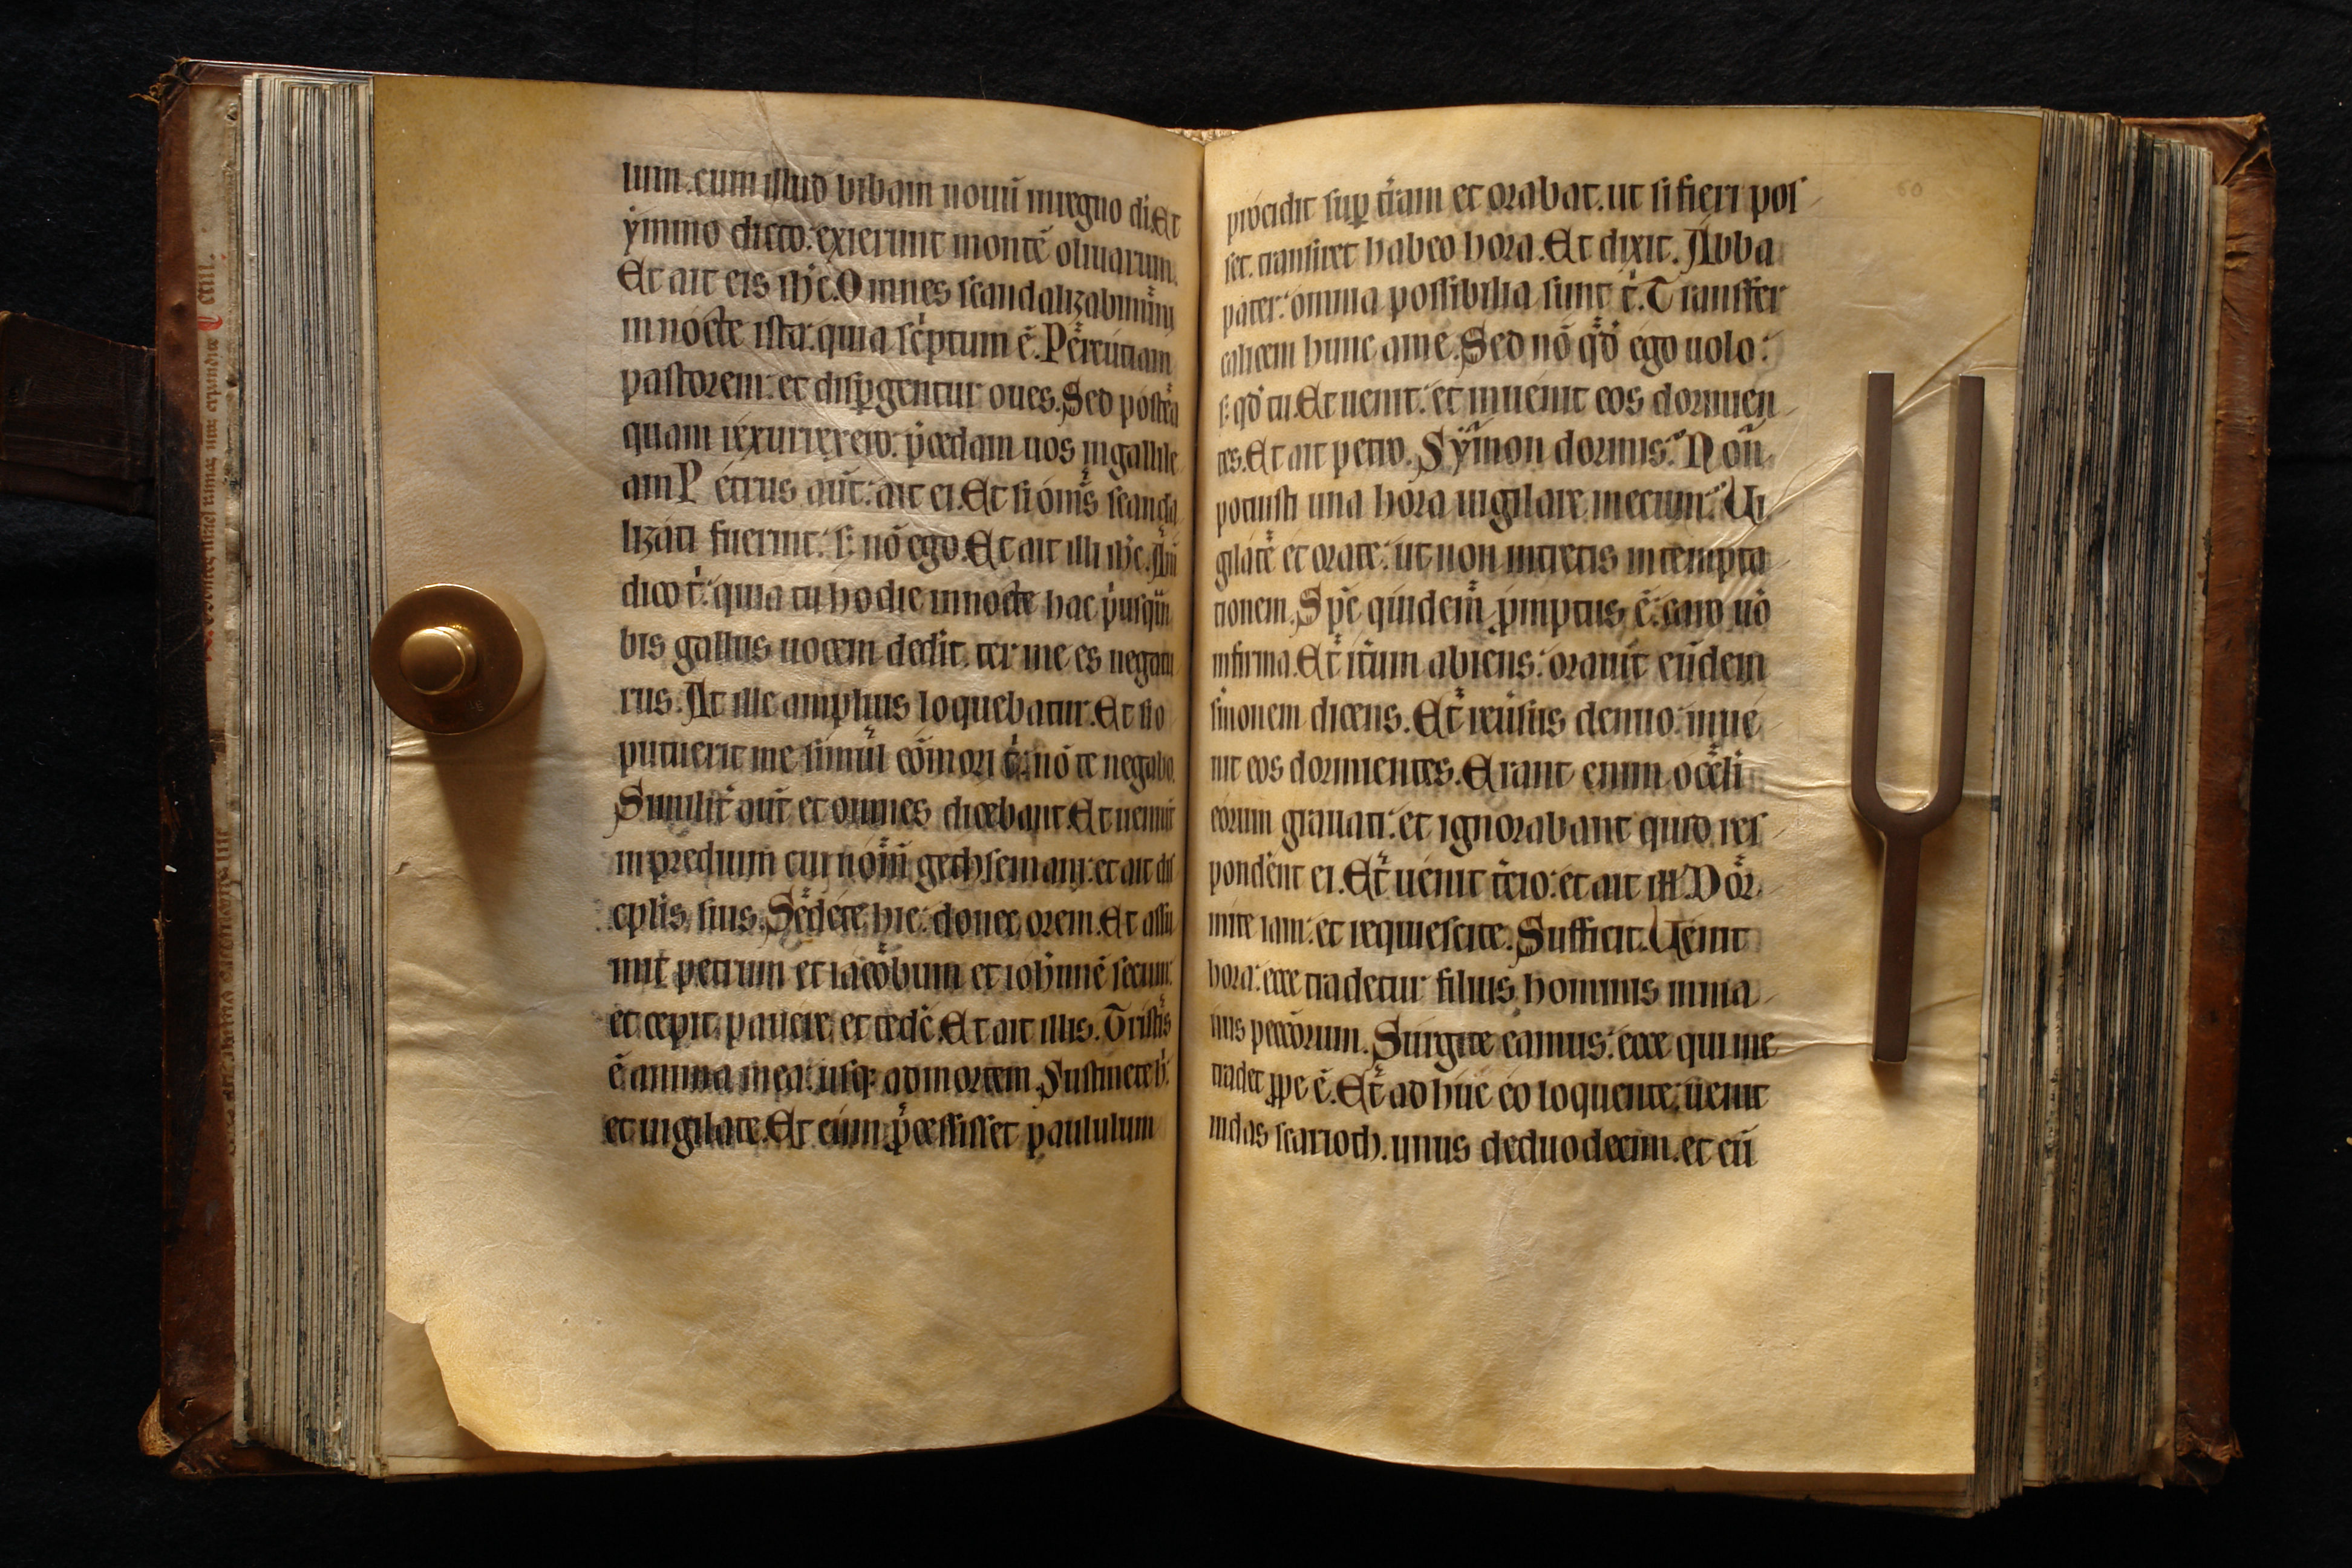 uum. cum illud bibam nouũ inregno dĩ. Et
ỹmno dicto: exierunt montẽ oliuarum.
Et ait eis ihc̃. Omnes scandalizabiminĩ
innocte ista: quia scͥptum ẽ. Percutiam
pastorem: et disꝑgentur oues. Sed postea
quam rexurrexero. p̃cedam uos ingalile
am Petrus aut̃: ait ei. Et si om̃s scanda
lizati fuerint: sꝫ nõ ego. Et ait illi ihc̃. Am̃
dico tͥ: quia tu hodie innocte hac pͥusqũ
bis gallus uocem dedit. ter me es negatu
rus. At ille amplius loquebatur. Et si o
putuerit me simul cõmori tͥ: nõ te negabo.
Similit̃ aut̃ et omnes dicebant. Et uenit
inpredium cui nom̃ gethsemani: et ait dis
cplis suis. Sedete hic: donec orem. Et assu
mit petrum et iacobum et iohannẽ secum:
et cepit pauere. et tedẽ. Et ait illis. Tristis
ẽ anima mea: usqꝫ admortem. Sustinete h:
et uigilate. Et cum p̃cessisset paululum
60
procidit suꝑ tr̃am et orabat. ut si fieri pos
set. transiret habeo hora. Et dixit. Abba
pater: omnia possibilia sunt tͥ. Transfer
calicem hunc ame. Sed nõ qͦd ego uolo:
sꝫ qd̃ tu. Et uenit: et inuenit eos dormien
tes. Et ait petro. Symon dormis? Non
potuisti una hora uigilare mecum? Ui
gilate et orate: ut non intretis intempta
tionem. Spc̃ quidem ꝓmptus ẽ: caro uõ
infirma. Et itũm abiens: orauit eũdem
smonem dicens. Et reuersus denuo: inue
nit eos dormientes. Erant enim oculi
eorum grauati: et ignorabant quid res
ponderent ei. Et uenit tẽio: et ait ill. Dor
mite iam: et requiescite. Sufficit. Uenit
hora: ecce tradetur filius hominis inma
nus peccorum. Surgite eamus: ecce qui me
tradet ꝓpe ẽ. Et adhuc eo loquente: uenit
iudas scarioth. unus deduodecim. et cũ